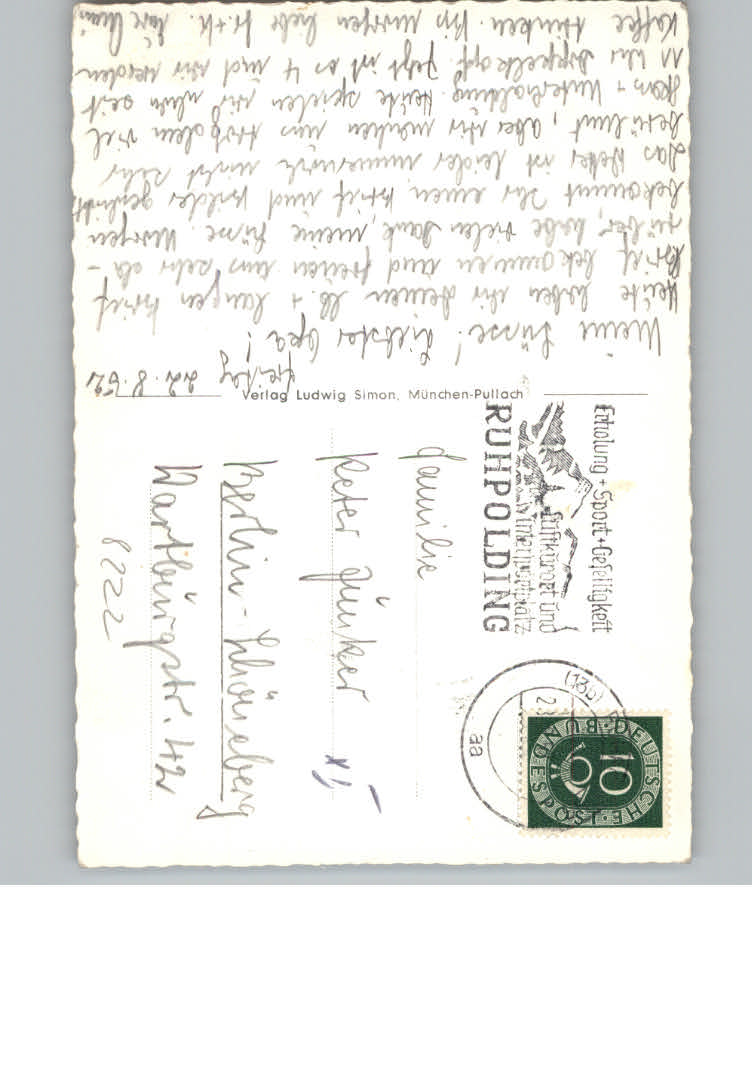 Freitag 22.8.52
Meine Süsse! Liebster Opa!
Heute haben wir Deinen lb. + langen Brief
Brief bekommen und freuen uns sehr da-
rüber, habe vielen Dank, meine Süsse. Morgen
bekommt Ihr einen Brief und Bilder geschickt
Das Wetter ist leider immer noch nicht sehr
berühmt, aber wir machen uns trotzdem viel
Spass + Unterhaltung. Heute spielen wir schon seit
11 Uhr Doppelkopf. Jetzt ist es 4 und wir werden
Kaffee trinken. Bis morgen liebe
Verlag Ludwig Simon, München-Pullach
Erholung + Sport + Geselligkeit
Luftkurort und
Wintersportplatz
RUHPOLDING
(13b)
aa
DEUTSCHE BUNDESPOST
10
Familie
Peter Jünker
Berlin-Schöneberg
Wartburgstr. 42
8222